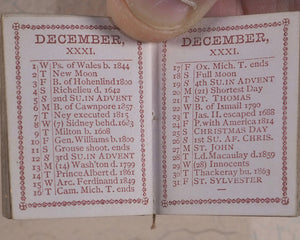 DECEMBER,
XXXI.
1 W Ps. of Wales b. 1844
2 T New Moon
3 F B. of Hohenlind 1800
4 S Richelieu d. 1642
5 S 2nd SU. IN ADVENT
6 M B. of Cawnpore 1857
7 T Ney executed 1815
8 W (7) Sidney behd. 1683
9 T Milton b. 1608
10 F Gen. Williams b. 1800
11 S Grouse shoot. ends
12 S 3rd SU. IN ADVENT
13 M (14) Wash'ton d. 1799
14 T Prince Albert d. 1861
15 W Arc. Ferdinand 1849
16 T Cam. Mich. T. ends
DECEMBER,
XXXI.
17 F Ox. Mich. T. ends
18 S Full Moon
19 S 4th SU. IN ADVENT
20 M (21) Shortest Day
21 T ST. THOMAS
22 W B. of Ismail 1790
23 T Jas. II. escaped 1688
24 F P. with America 1814
25 S CHRISTMAS DAY
26 S 1st SU. AF. CHRIS.
27 M ST. JOHN
28 T Ld. Macaulay d. 1859
29 W (28) Innocents
30 T Thackeray bu. 1863
31 F ST. SYLVESTER